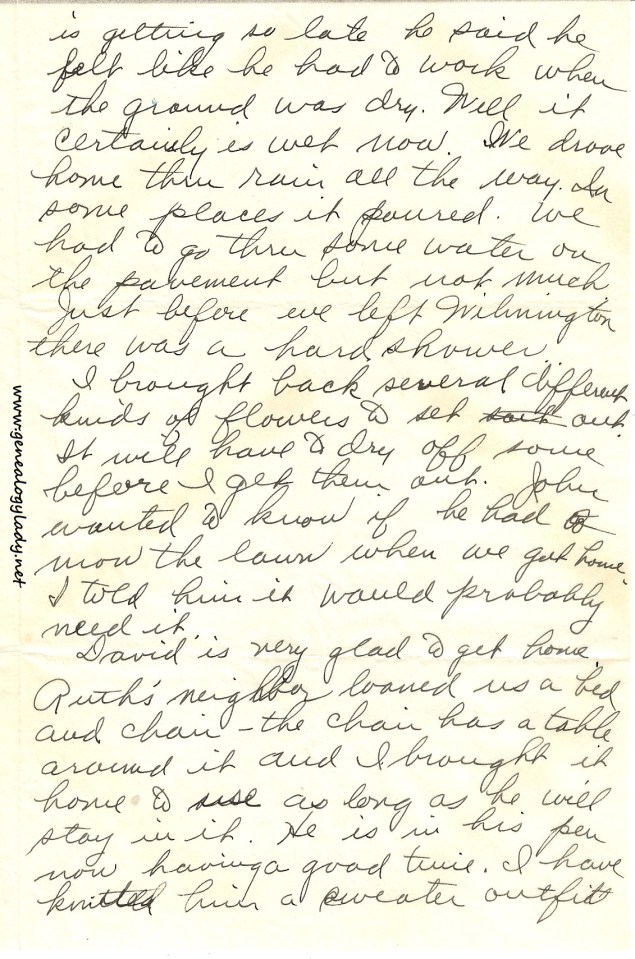 is getting so late he said he
felt like he had to work when
the ground was dry. Well it
certainly is wet now. We drove
home thru rain all the way. In
some places it poured. We
had to go thru some water on
the pavement but not much
Just before we left Wilmington
there was a hard shower.
I brought back several different
kinds of flowers to set out.
It will have to dry off some
before I get them out. John
wanted to know if he had to
mow the lawn when we got home.
I told him it would probably
need it.
David is very glad to get home.
Ruth's neighbor loaned us a bed
and chair - the chair has a table
around it and I brought it
home to use as long as he will
stay in it. He is in his pen
now having a good time. I have
knitted him a sweater outfit
www.genealogylady.net